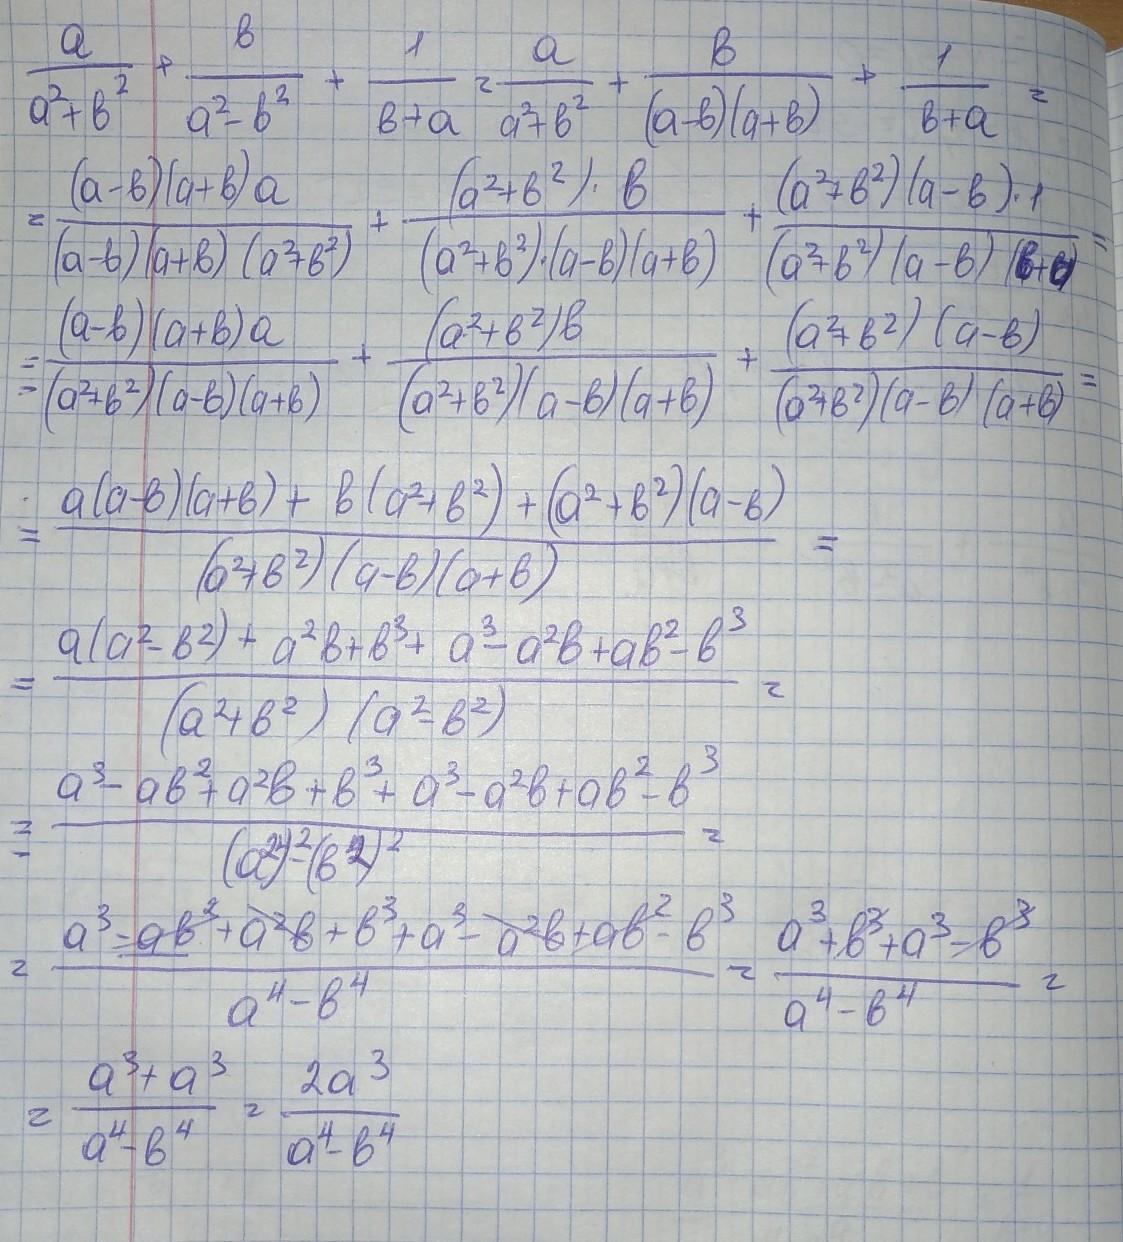 a/(a²+b²) + b/(a²-b²) + 1/(b+a) = a/(a²+b²) + b/((a-b)(a+b)) + 1/(b+a) =
= (a-b)(a+b)a/((a-b)(a+b)(a²+b²)) + (a²+b²)·b/((a²+b²)·(a-b)(a+b)) + (a²+b²)(a-b)·1/((a²+b²)(a-b)(b+a)) =
= (a-b)(a+b)a/((a²+b²)(a-b)(a+b)) + (a²+b²)b/((a²+b²)(a-b)(a+b)) + (a²+b²)(a-b)/((a²+b²)(a-b)(a+b)) =
= (a(a-b)(a+b) + b(a²+b²) + (a²+b²)(a-b))/((a²+b²)(a-b)(a+b)) =
= (a(a²-b²) + a²b+b³+a³-a²b+ab²-b³)/((a²+b²)(a²-b²)) =
= (a³-ab²+a²b+b³+a³-a²b+ab²-b³)/((a²)²-(b²)²) =
= (a³-ab²+a²b+b³+a³-a²b+ab²-b³)/(a⁴-b⁴) = (a³+b³+a³-b³)/(a⁴-b⁴) =
= (a³+a³)/(a⁴-b⁴) = 2a³/(a⁴-b⁴)